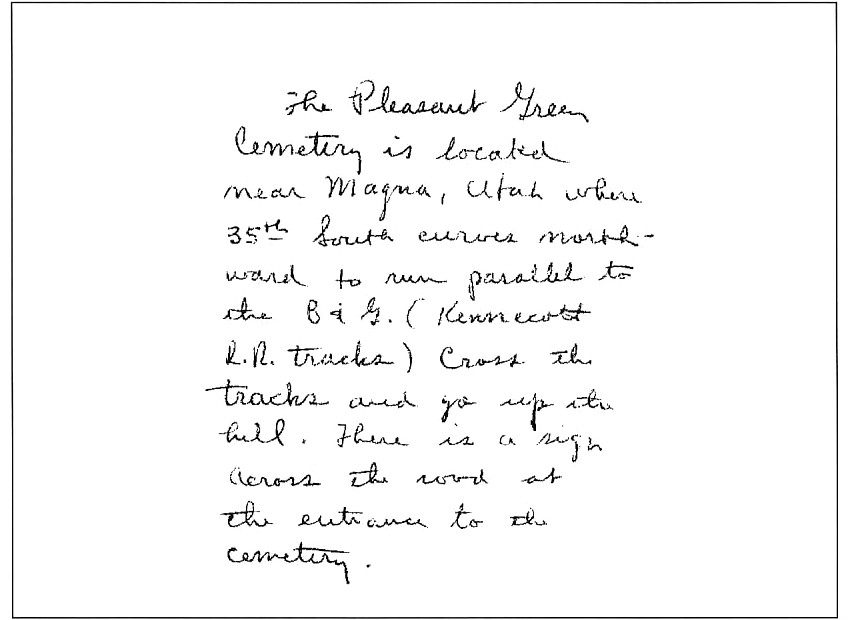 The Pleasant Green
Cemetery is located
near Magna, Utah where
35th South curves north-
ward to run parallel to
the B & G. (Kennecott
R.R. tracks) Cross the
tracks and go up the
hill. There is a sign
across the road at
the entrance to the
cemetery.